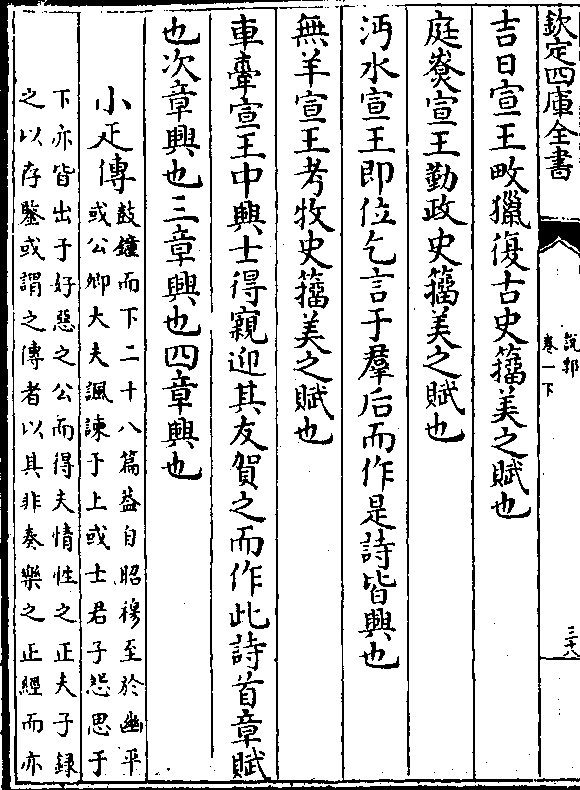 欽定四庫全書
說郛
卷一下
三十八
吉日宣王畋獵復古史籀美之賦也
庭燎宣王勤政史籀美之賦也
沔水宣王即位乞言于羣后而作是詩皆興也
無羊宣王考牧史籀美之賦也
車舝宣王中興士得親迎其友賀之而作此詩首章賦
也次章興也三章興也四章興也
小疋傳
鼓鐘而下二十八篇益自昭穆至於幽平
或公卿大夫諷諫于上或士君子怨思于
下亦皆出于好惡之公而得夫情性之正夫子録
之以存鑒或謂之傳者以其非奏樂之正經而亦